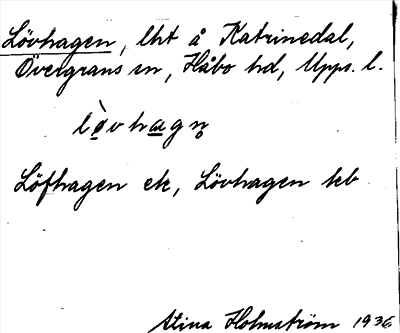 Lövhagen, lht å Katrinedal,
Övergrans sn, Håbo hd, Upps. l.
lò̱vha̱gn̥
Löfhagen ek, Lövhagen kb
Stina Holmström 1936